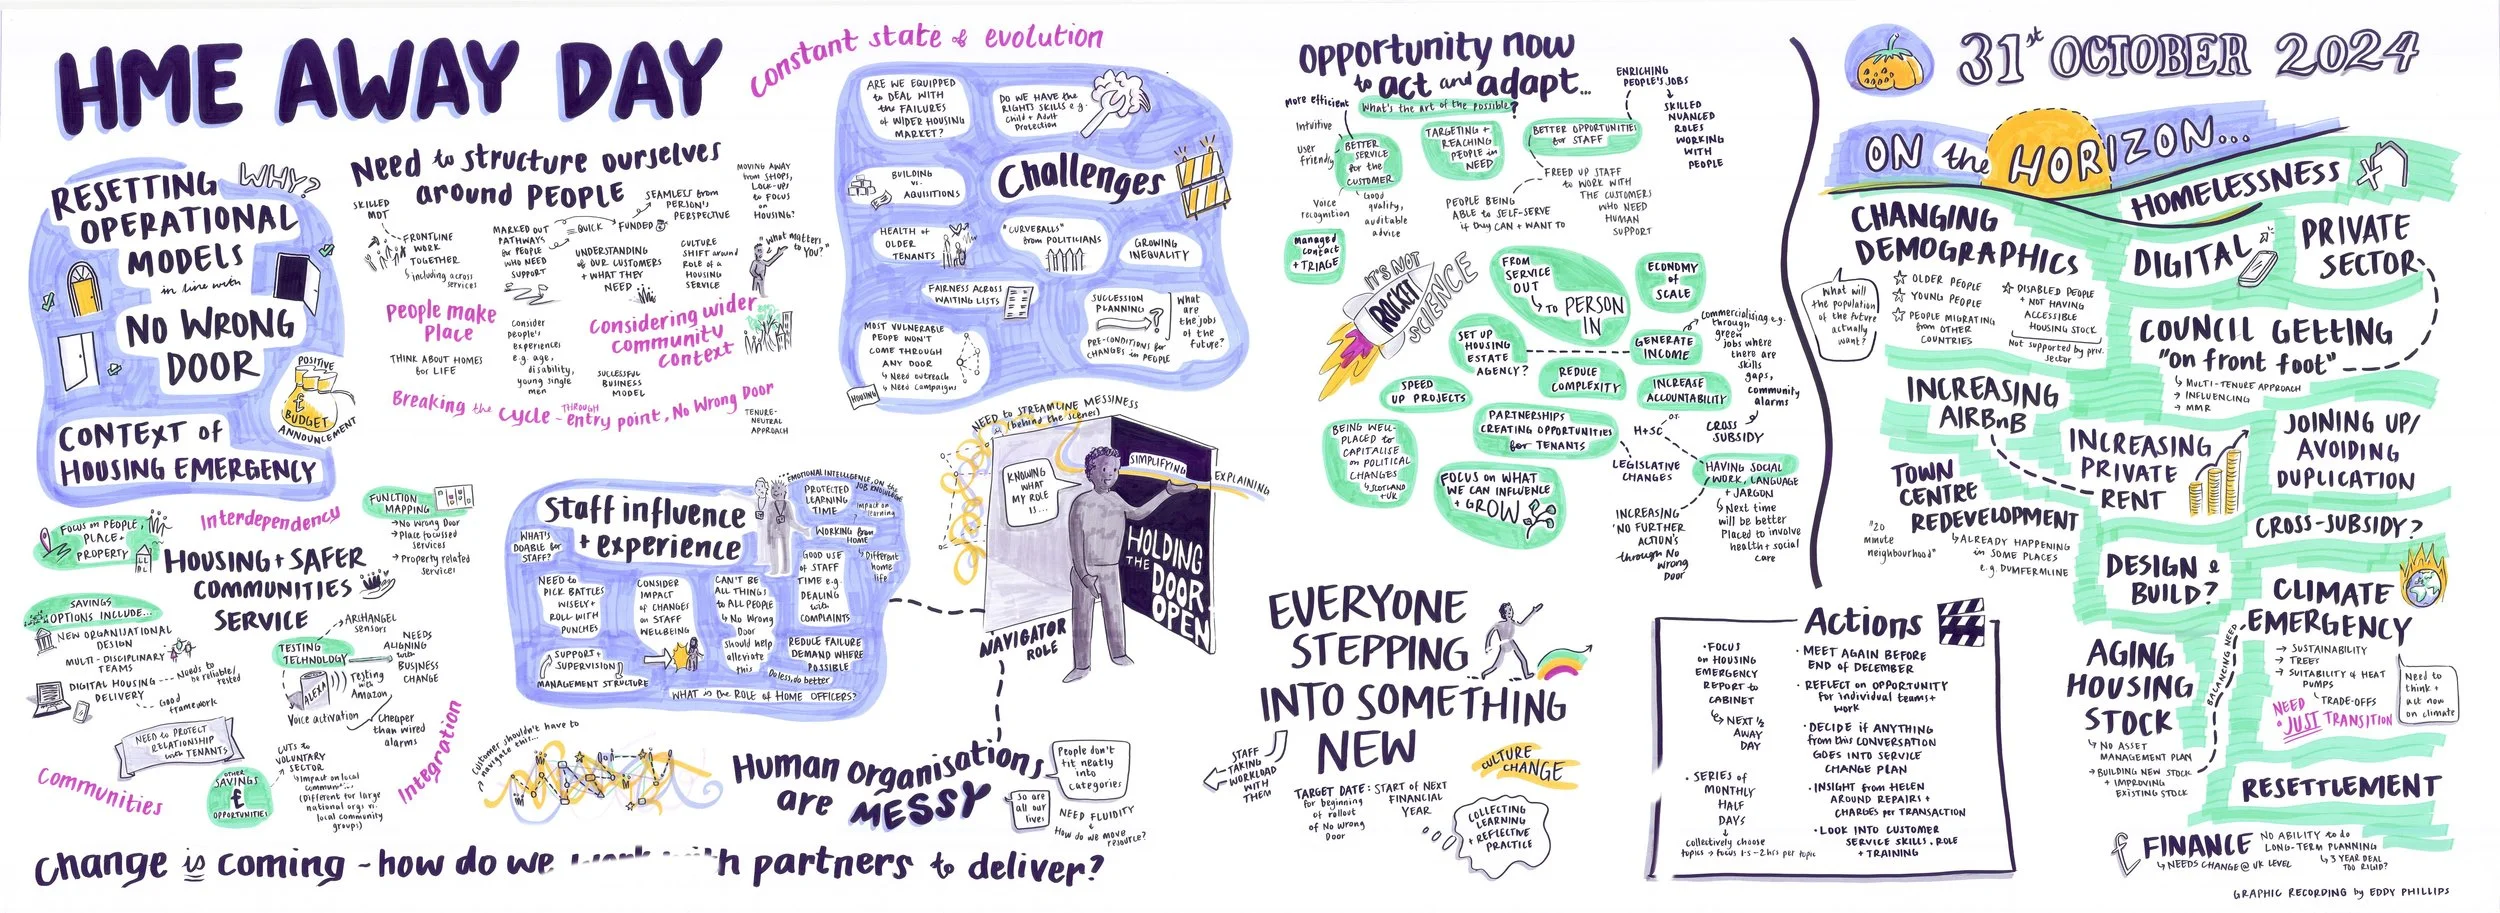 HME AWAY DAY
RESETTING
WHY?
OPERATIONAL
MODELS
in line with
NO WRONG
DOOR
POSITIVE
£
BUDGET
ANNOUNCEMENT
CONTEXT of
HOUSING EMERGENCY
Need to structure ourselves
around PEOPLE
SKILLED
MDT
FRONTLINE
WORK
TOGETHER
including across
services
MARKED OUT
PATHWAYS
for PEOPLE
WHO NEED
SUPPORT
QUICK
FUNDED
SEAMLESS from
PERSON'S
PERSPECTIVE
UNDERSTANDING
of OUR CUSTOMERS
+ WHAT THEY
NEED
CULTURE
SHIFT around
ROLE of a
HOUSING
SERVICE
MOVING AWAY
from SHOPS,
LOCK-UPS
to FOCUS
on
HOUSING?
"What matters
to you?"
People make
Place
THINK ABOUT HOMES
for LIFE
Consider
people's
experiences
e.g. age,
disability,
young single
men
Considering wider
community
context
SUCCESSFUL
BUSINESS
MODEL
Breaking the cycle - THROUGH entry point, No Wrong Door
TENURE-
NEUTRAL
APPROACH
Constant state of evolution
ARE WE EQUIPPED
to DEAL WITH
the FAILURES
of WIDER HOUSING
MARKET?
DO WE HAVE the
RIGHT SKILLS e.g.
Child + Adult
Protection
Challenges
BUILDING
vs.
AQUISITIONS
HEALTH of
OLDER
TENANTS
"CURVEBALLS"
from POLITICIANS
GROWING
INEQUALITY
FAIRNESS ACROSS
WAITING LISTS
SUCCESSION
PLANNING
?
PRE-CONDITIONS for
CHANGES in PEOPLE
What
are
the jobs
of the
future?
MOST VULNERABLE
PEOPE WON'T
COME THROUGH
ANY DOOR
Need outreach
Need campaigns
HOUSING
FOCUS on PEOPLE,
PLACE +
PROPERTY
Interdependency
FUNCTION
MAPPING
No Wrong Door
Place focussed
services
Property related
services
HOUSING + SAFER
COMMUNITIES
SERVICE
SAVINGS
OPTIONS INCLUDE...
NEW ORGANISATIONAL
DESIGN
MULTI-DISCIPLINARY
TEAMS
DIGITAL HOUSING
DELIVERY
Needs to
be reliable/
tested
Good
framework
NEED to PROTECT
RELATIONSHIP
with TENANTS
Communities
OTHER
SAVINGS
£
OPPORTUNITIES
CUTS to
VOLUNTARY
SECTOR
Impact on local
(Different for large
national orgs vs.
local community
groups)
TESTING
TECHNOLOGY
ARCHANGEL
sensors
NEEDS
ALIGNING
with
BUSINESS
CHANGE
ALEXA
Testing
with
Amazon
Voice activation
Cheaper
than wired
alarms
Integration
Staff influence
+ experience
EMOTIONAL INTELLIGENCE, ON the
JOB KNOWLEDGE
PROTECTED
LEARNING
TIME
Impact on
learning
WORKING from
HOME
Different
home
life
WHAT'S
DOABLE for
STAFF?
NEED to
PICK BATTLES
WISELY +
ROLL WITH
PUNCHES
CONSIDER
IMPACT
of CHANGES
on STAFF
WELLBEING
CAN'T BE
ALL THINGS
to ALL PEOPLE
No Wrong
Door
should help
alleviate
this
GOOD USE
of STAFF
TIME e.g.
DEALING
with
COMPLAINTS
REDUCE FAILURE
DEMAND WHERE
POSSIBLE
Do less, do better
SUPPORT +
SUPERVISION
MANAGEMENT STRUCTURE
WHAT is the ROLE of HOME OFFICERS?
Customer shouldn't have to
navigate this...
NEED to STREAMLINE MESSINESS
(behind the scenes)
KNOWING
WHAT
MY ROLE
IS...
SIMPLIFYING
EXPLAINING
HOLDING
THE DOOR
OPEN
NAVIGATOR
ROLE
Human organisations
are MESSY
People don't
fit neatly
into
categories
So are
all our
lives!
NEED FLUIDITY
How do we move
resource?
Change is coming - how do we work with partners to deliver?
Opportunity now
to act and adapt...
What's the art of the possible?
More efficient
Intuitive
User
friendly
BETTER
SERVICE
for the
CUSTOMER
Voice
recognition
Good
quality,
auditable
advice
TARGETING +
REACHING
PEOPLE in
NEED
BETTER OPPORTUNITIES
for STAFF
ENRICHING
PEOPLE'S JOBS
SKILLED
NUANCED
ROLES
WORKING
WITH
PEOPLE
FREED UP STAFF
to WORK WITH
THE CUSTOMERS
WHO NEED
HUMAN
SUPPORT
PEOPLE BEING
ABLE to SELF-SERVE
if they CAN + WANT TO
Managed
contact
+ TRIAGE
IT'S NOT
ROCKET
SCIENCE
FROM
SERVICE
OUT
TO PERSON
IN
ECONOMY
of SCALE
SET UP
HOUSING
ESTATE
AGENCY?
GENERATE
INCOME
Commercialising e.g.
through
green
jobs where
there are
skills
gaps,
community
alarms
SPEED
UP PROJECTS
REDUCE
COMPLEXITY
INCREASE
ACCOUNTABILITY
or
CROSS
SUBSIDY
PARTNERSHIPS
CREATING OPPORTUNITIES
for TENANTS
H+SC
BEING WELL-
PLACED to
CAPITALISE
on POLITICAL
CHANGES
SCOTLAND
+ UK
LEGISLATIVE
CHANGES
HAVING SOCIAL
WORK, LANGUAGE
+ JARGON
Next time
will be better
placed to involve
health + social
care
FOCUS on WHAT
WE CAN INFLUENCE
+ GROW
INCREASING
'NO FURTHER
ACTION'S
through No
Wrong
Door
EVERYONE
STEPPING
INTO SOMETHING
NEW
STAFF
TAKING
WORKLOAD
WITH
THEM
TARGET DATE: START of NEXT
FINANCIAL
YEAR
for beginning
of rollout
of No Wrong
Door
CULTURE
CHANGE
COLLECTING
LEARNING
+ REFLECTIVE
PRACTICE
Actions
• FOCUS
on HOUSING
EMERGENCY
REPORT to
CABINET
NEXT 1/2
AWAY
DAY
• SERIES of
MONTHLY
HALF
DAYS
collectively choose
topics → focus 1.5-2hrs per topic
• MEET AGAIN BEFORE
END of DECEMBER
• REFLECT on OPPORTUNITY
for individual teams +
work
• DECIDE if ANYTHING
from this CONVERSATION
GOES INTO SERVICE
CHANGE PLAN
• INSIGHT from HELEN
AROUND REPAIRS +
CHARGES per TRANSACTION
• LOOK INTO CUSTOMER
SERVICE SKILLS, ROLE
+ TRAINING
31st OCTOBER 2024
ON the HORIZON...
HOMELESSNESS
CHANGING
DEMOGRAPHICS
What will
the population
of the future
actually
want?
OLDER PEOPLE
YOUNG PEOPLE
PEOPLE MIGRATING
from OTHER
COUNTRIES
DISABLED PEOPLE
+ NOT HAVING
ACCESSIBLE
HOUSING STOCK
Not supported by priv.
sector
DIGITAL
PRIVATE
SECTOR
COUNCIL GETTING
"on front foot"
MULTI-TENURE APPROACH
INFLUENCING
MMR
INCREASING
AIRBnB
INCREASING
PRIVATE
RENT
JOINING UP/
AVOIDING
DUPLICATION
TOWN
CENTRE
REDEVELOPMENT
"20
minute
neighbourhood"
ALREADY HAPPENING
in SOME PLACES
e.g. DUMFERMLINE
CROSS-SUBSIDY?
DESIGN &
BUILD?
CLIMATE
EMERGENCY
SUSTAINABILITY
TREES
SUITABILITY of HEAT
PUMPS
TRADE-OFFS
NEED
a JUST TRANSITION
Need to
think +
act now
on climate
BALANCING NEED
AGING
HOUSING
STOCK
NO ASSET
MANAGEMENT PLAN
BUILDING NEW STOCK
+ IMPROVING
EXISTING STOCK
RESETTLEMENT
£ FINANCE
NEEDS CHANGE @ UK LEVEL
NO ABILITY to do
LONG-TERM PLANNING
3 YEAR DEAL
TOO RIGID?
GRAPHIC RECORDING by EDDY PHILLIPS